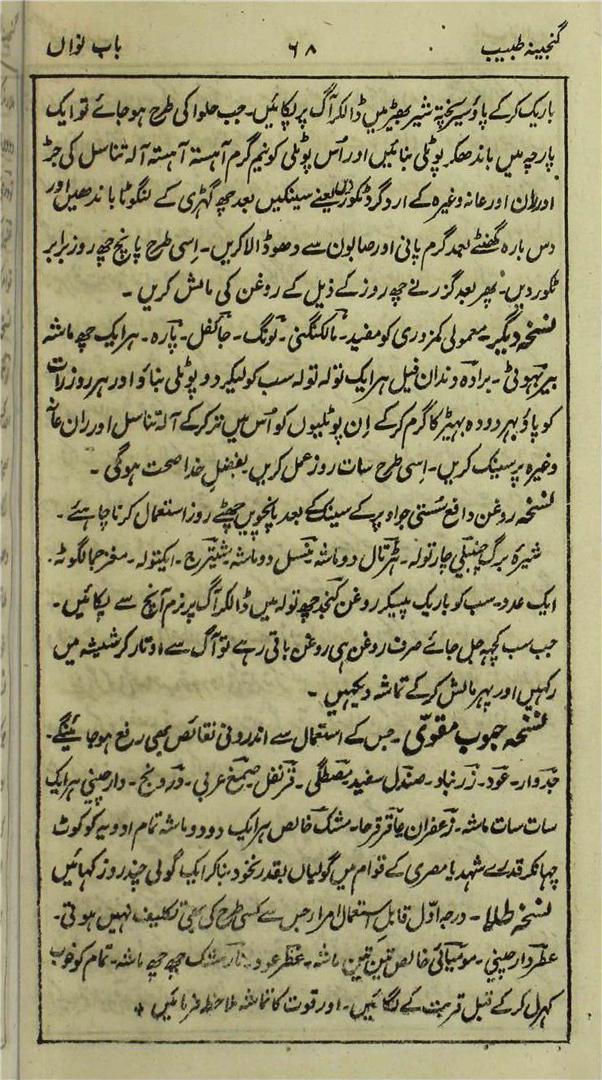 گنجینہ طبیب ۶۸ باب نواں
باریک کرکے پاؤ سیر پختہ شیر بھیڑ میں ڈالکر آگ پر پکائیں۔ جب حلوا کی طرح ہو جائے تو ایک
پارچہ میں باندھکر پوٹلی بنائیں اور اُس پوٹلی کو نیم گرم آہستہ آہستہ آلہ تناسل کی جڑ
اور ران اور عانہ وغیرہ کے ارد گرد ٹکور دیں یعنے سینکیں بعد چھ گھڑی کے لنگوٹا باندھیں اور
دس بارہ گھنٹے بعد گرم پانی اور صابون سے دھو ڈالا کریں۔ اِسی طرح پانچ چھ روز برابر
ٹکور دیں۔ پھر بعد گزرنے چھ روز کے ذیل کے روغن کی مالش کریں ۔
نسخہ دیگر۔ معمولی کمزوری کو مفید۔ مالکنگنی۔ لونگ۔ جائفل۔ پارہ۔ ہر ایک چھ ماشہ
بیر بہوٹی۔ برادہ دندان فیل ہر ایک تولہ تولہ سب کو لیکر دو پوٹلی بناؤ اور ہر روز رات
کو پاؤ بھر دودھ بھیڑ کا گرم کرکے اِن پوٹلیوں کو اُس میں تر کرکے آلہ تناسل اور ران عانہ
وغیرہ پر سینک کریں۔ اِسی طرح سات روز عمل کریں بفضلِ خدا صحت ہوگی ۔
نسخہ روغن دافع سُستی جو اوپر کے سینک کے بعد پانچویں چھٹے روز استعمال کرنا چاہئے۔
شیرہ برگ چنبیلی چار تولہ۔ ہڑتال دو ماشہ۔ دو ماشہ۔ ایکتولہ۔ مغز جمالگوٹہ۔
ایک عدد۔ سب کو باریک پیسکر روغن کنجد چھ تولہ میں ڈالکر آگ پر نرم آنچ سے پکائیں۔
جب سب کچھ جل جائے صرف روغن ہی روغن باقی رہے تو آگ سے اوتار کر شیشہ میں
رکھیں اور پھر مالش کرکے تماشہ دیکھیں ۔
نسخہ حبوب مقوّی۔ جس کے استعمال سے اندرونی نقائص بھی رفع ہو جائینگے۔
جدوار۔ عود۔ زرنباد۔ صندل سفید۔ مصطگی۔ قرنفل۔ صمغ عربی۔ درونج۔ دارچینی ہر ایک
سات سات ماشہ۔ زعفران۔ عاقرقرحا۔ مشک خالص ہر ایک دو دو ماشہ تمام ادویہ کو کوٹ
چھانکر قدرے شہد یا مصری کے قوام میں گولیاں بقدر نخود بنا کر ایک گولی چند روز کھائیں
نسخہ طلا۔ درجہ اوّل قابلِ استعمال امرا۔ جس سے کسی طرح کی بھی تکلیف نہیں ہوتی۔
عطر دارچینی۔ مومیائی خالص تین تین ماشہ۔ عطر عود۔ مشک چھ چھ ماشہ۔ تمام کو خوب
کھرل کرکے قبل قربت کے لگائیں۔ اور قوت کا تماشہ ملاحظہ فرمائیں ٭